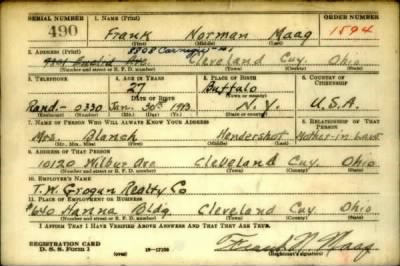 SERIAL NUMBER 1. NAME (Print) ORDER NUMBER
490 Frank Norman Maag 1594
(First) (Middle) (Last)
2. ADDRESS (Print) 8808 Carnegie
Euclid Ave Cleveland Cuy. Ohio
(Number and street or R. F. D. number) (Town) (County) (State)
3. TELEPHONE 4. AGE IN YEARS 5. PLACE OF BIRTH 6. COUNTRY OF CITIZENSHIP
27 Buffalo
DATE OF BIRTH (Town or county)
Rand.- 0330 Jan. 30th 1913 N. Y. U.S.A.
(Exchange) (No.) (Mo.) (Day) (Yr.) (State or country)
7. NAME OF PERSON WHO WILL ALWAYS KNOW YOUR ADDRESS 8. RELATIONSHIP OF THAT PERSON
Mrs. Blanch Hendershot Mother-in-Law
(Mr., Mrs., Miss) (First) (Middle) (Last)
9. ADDRESS OF THAT PERSON
10120 Wilbur Ave Cleveland Cuy. Ohio
(Number and street or R. F. D. number) (Town) (County) (State)
10. EMPLOYER'S NAME
T. W. Grogan Realty Co
11. PLACE OF EMPLOYMENT OR BUSINESS
#640 Hanna Bldg. Cleveland Cuy. Ohio
(Number and street or R. F. D. number) (Town) (County) (State)
I AFFIRM THAT I HAVE VERIFIED ABOVE ANSWERS AND THAT THEY ARE TRUE.
REGISTRATION CARD
D. S. S. Form 1 (over) Frank N. Maag
(Registrant's signature)